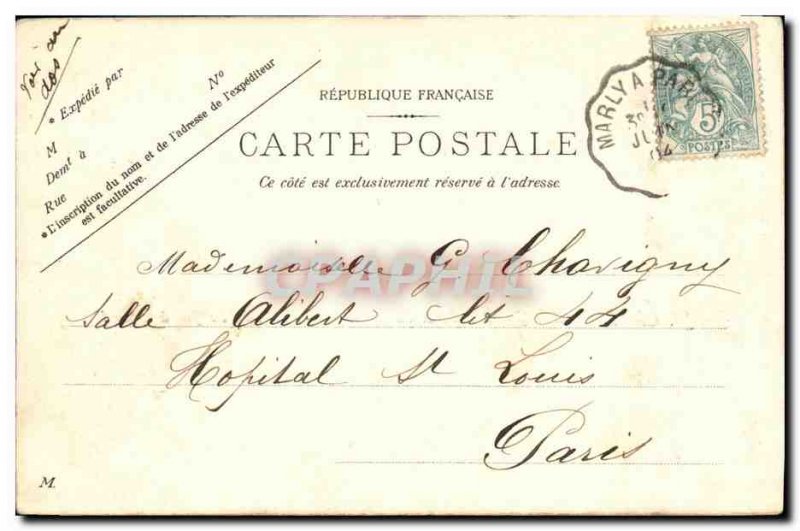 Voir au
dos
* Expédié par
N°
M
Demt à
Rue
* L'inscription du nom et de l'adresse de l'expéditeur
est facultative.
RÉPUBLIQUE FRANÇAISE
CARTE POSTALE
Ce côté est exclusivement réservé à l'adresse.
MARLY A PARIS
30
JUIN
04
5
POSTES
CPAPHIL
Mademoiselle G Chavigny
Salle Alibert lit 44
Hopital St Louis
Paris
M.